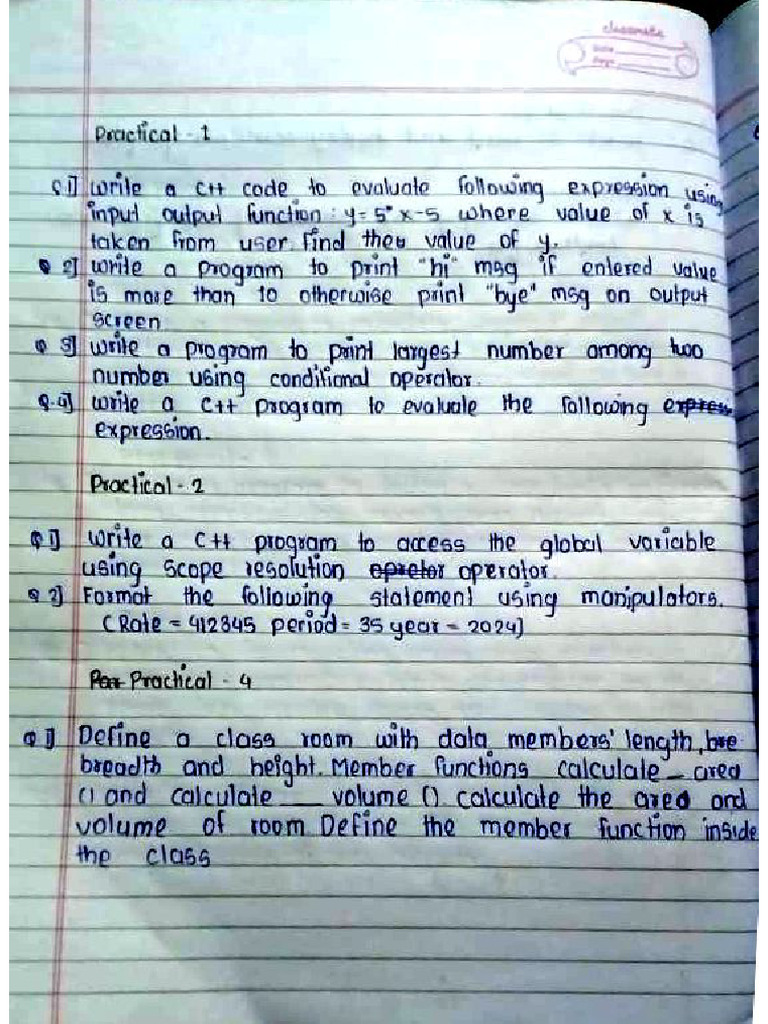 classmate
Date
Page
Practical - 1
Q 1] Write a C++ code to evaluate following expression using
input output function : y = 5* x - 5 where value of x is
taken from user find the value of y.
Q 2] Write a program to print "hi" msg if entered value
is more than 10 otherwise print "bye" msg on output
screen
Q 3] Write a program to print largest number among two
number using conditional operator.
Q.4] Write a C++ program to evaluate the following expres
expression.
Practical - 2
Q 1] Write a C++ program to access the global variable
using scope resolution opretor operator.
Q 2] Format the following statement using manipulators.
(Rate = 412345 period = 35 year = 2024]
Practical - 4
Q 1] Define a class room with data members' length, bre
breadth and height. Member functions calculate _ area
() and calculate __ volume (). calculate the area and
volume of room Define the member function inside
the class